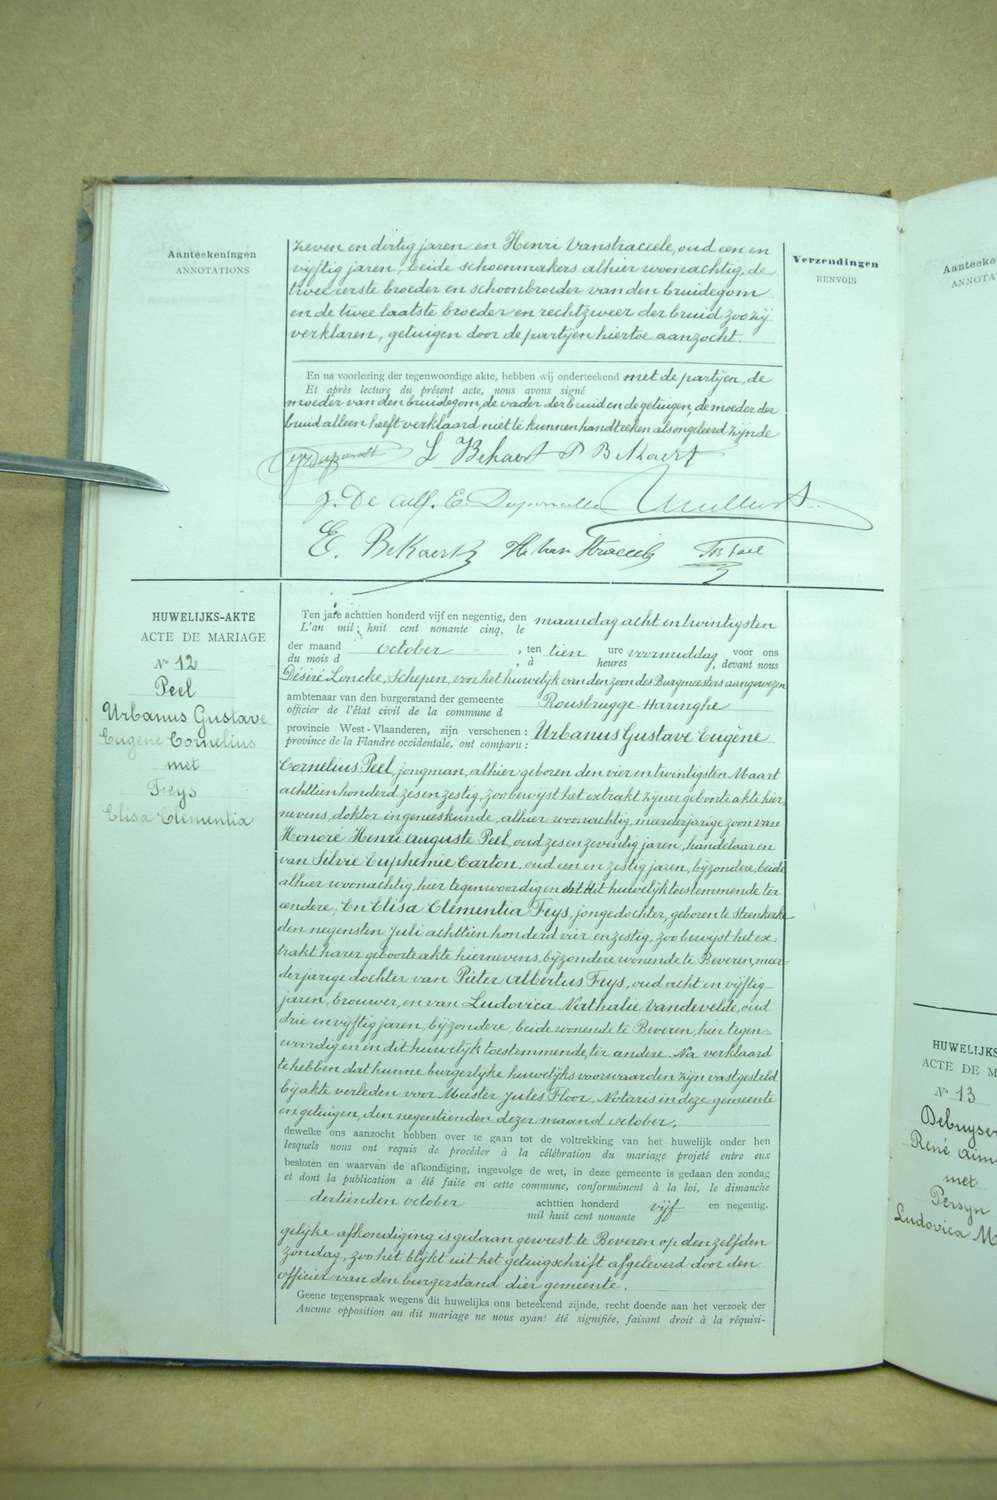 Aanteekeningen
ANNOTATIONS
zeven en dertig jaren en Henri Vanstraceele, oud een en
vijftig jaren, beide schoenmakers alhier woonachtig, de
twee eerste broeder en schoonbroeder van den bruidegom
en de twee laatste broeder en rechtzweer der bruid zoo zij
verklaren, getuigen door de partijen hiertoe aanzocht.
Verzendingen
RENVOIS
En na voorlezing der tegenwoordige akte, hebben wij onderteekend met de partijen, de
Et après lecture du présent acte, nous avons signé
moeder van den bruidegom, de vader der bruid en de getuigen, de moeder der
bruid alleen heeft verklaard niet te kunnen handteeken als ongeleerd zijnde
L Bekaert P Bekaert
J. De Calf. E.
E. Bekaert H. Van Straceele
HUWELIJKS-AKTE
ACTE DE MARIAGE
N° 12
Peel
Urbanus Gustave
Eugène Cornelius
met
Feys
Elisa Clementia
Ten jare achttien honderd vijf en negentig, den maandag acht en twintigsten
L'an mil huit cent nonante cinq, le
der maand october, ten tien ure voormiddag voor ons
du mois d , à heures , devant nous
Désiré Loncke, Schepen, voor het huwelijk van den zoon des Burgmeesters aangewezen
ambtenaar van den burgerstand der gemeente Rousbrugge-Haringhe
officier de l'état civil de la commune d
provincie West-Vlaanderen, zijn verschenen: Urbanus Gustave Eugène
province de la Flandre occidentale, ont comparu:
Cornelius Peel, jongman, alhier geboren den vier en twintigsten Maart
achttien honderd zes en zestig, zoo bewijst het extrakt zijner geboorte akte hier
nevens, doktor in geneeskunde, alhier woonachtig, meerderjarige zoon van
Honoré Henri Auguste Peel, oud zes en zeventig jaren, handelaar en
van Silvie Euphemie Carton, oud een en zestig jaren, bijzondere, beide
alhier woonachtig, hier tegenwoordig en dit huwelijk toestemmende ter
eendere; En Elisa Clementia Feys, jongedochter, geboren te Steenkerke
den negensten Juli achttien honderd vier en zestig, zoo bewijst het ex-
trakt harer geboorte akte hiernevens, bijzondere wonende te Beveren, meer-
derjarige dochter van Pieter Albertus Feys, oud acht en vijftig
jaren, brouwer, en van Ludovica Nathalie Vandevelde, oud
drie en vijftig jaren, bijzondere, beide wonende te Beveren, hier tegen-
woordig en in dit huwelijk toestemmende, ter andere. Na verklaard
te hebben dat hunne burgerlyke huwelijks voorwaarden zijn vastgesteld
bij akte verleden voor Meister Jules Floor, Notaris in deze gemeente
en getuigen, den negentienden dezer maand october.
dewelke ons aanzocht hebben over te gaan tot de voltrekking van het huwelijk onder hen
lesquels nous ont requis de procéder à la célébration du mariage projeté entre eux
besloten en waarvan de afkondiging, ingevolge de wet, in deze gemeente is gedaan den zondag
et dont la publication a été faite en cette commune, conformément à la loi, le dimanche
dertienden october achttien honderd vijf en negentig.
mil huit cent nonante
gelijke afkondiging is gedaan geweest te Beveren op den zelfden
zondag, zoo het blijkt uit het getuigschrift afgeleverd door den
officier van den burgerstand dier gemeente.
Geene tegenspraak wegens dit huwelijks ons beteekend zijnde, recht doende aan het verzoek der
Aucune opposition au dit mariage ne nous ayant été signifiée, faisant droit à la réquisi-
Aanteeke
ANNOTA
HUWELIJKS
ACTE DE M
N° 13
Debuyser
René Aimé
met
Persyn
Ludovica M